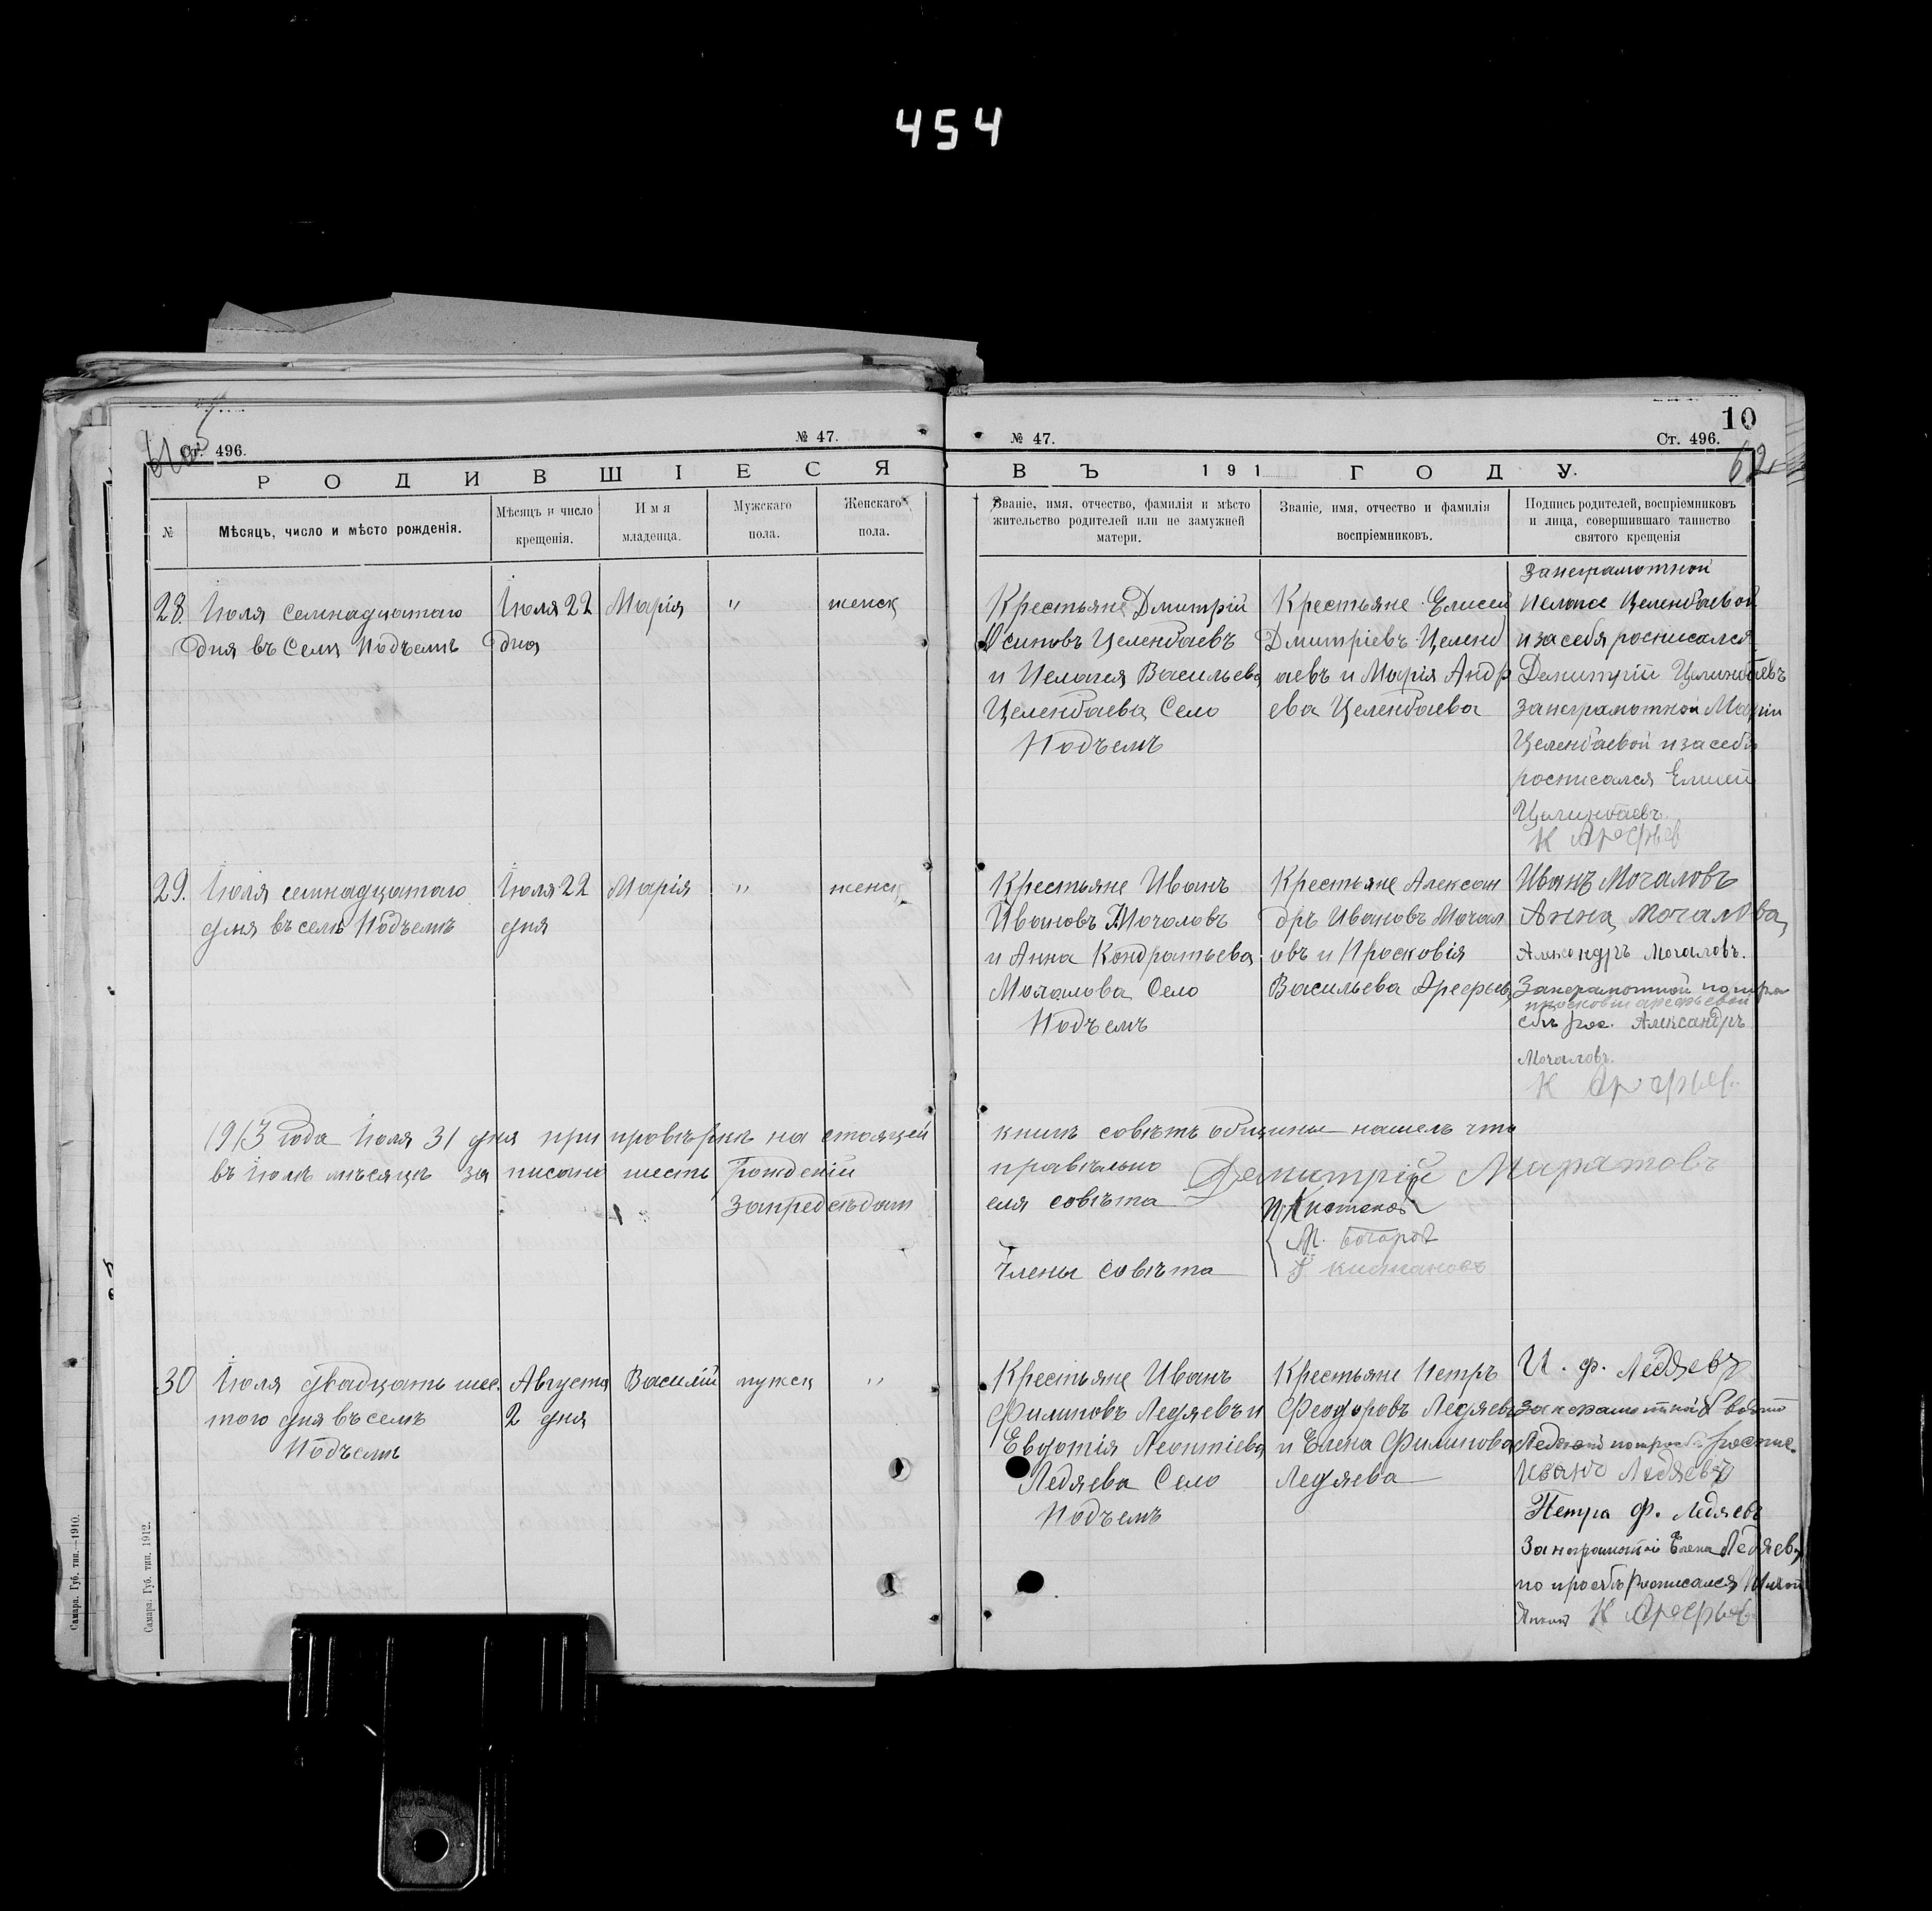 454
10
Ст. 496.
№ 47.
№ 47.
Ст. 496.
62
РОДИВШІЕСЯ
ВЪ 191 ГОДУ.
№
Мѣсяцъ, число и мѣсто рожденія.
Мѣсяцъ и число
крещенія.
Имя
младенца.
Мужскаго
пола.
Женскаго
пола.
Званіе, имя, отчество, фамилія и мѣсто
жительство родителей или не замужней
матери.
Званіе, имя, отчество и фамилія
воспріемниковъ.
Подпись родителей, воспріемниковъ
и лица, совершившаго таинство
святого крещенія
28. Іюля семнадцатаго
дня въ Селѣ Подъемъ
Іюля 22
дня
Марія
"
женск
Крестьяне Дмитрій
Осиповъ Целенбаевъ
и Пелагея Васильева
Целенбаева Село
Подъемъ
Крестьяне Елисей
Дмитріевъ Целенб
аевъ и Марія Андр
ева Целенбаева
Занеграмотной
Целенбаевой
и за себя росписался
Целинбаевъ
занеграмотной Маріи
Целенбаевой и за себя
росписался Елисей
Целинбаевъ
К Арефьев
29. Іюля семнадцатаго
дня въ селѣ Подъемъ
Іюля 22
дня
Марія
"
женск
Крестьяне Иванъ
Ивановъ Мочаловъ
и Анна Кондратьева
Мочалова Село
Подъемъ
Крестьяне Алексан
дръ Ивановъ Мочал
овъ и Просковія
Васильева Арефьев
Иванъ Мочаловъ
Анна Мочалова
Александръ Мочаловъ.
Занеграмотной по прозь
просковии арефьевой
рос. Александръ
Мочаловъ.
К Арефьев
1913 года Іюля 31 дня при провѣркѣ на стоящей
въ Іюлѣ мѣсяцѣ за писано шесть рожденій
Запредсѣдат
книги совѣтъ общины нашелъ что
правельно
еля совѣта
Демитрій Муратовъ
Члены совѣта
30 Іюля двадцать шес.
того дня въ селѣ
Подъемъ
Августа
2 дня
Василій
мужск
"
Крестьяне Иванъ
Филиповъ Ледяевъ и
Евдотія Леонтіева
Ледяева Село
Подъемъ
Крестьяне Петръ
Феодоровъ Ледяевъ
и Елена Филипова
Ледяева
И. ф. Ледяевъ
Занеграмотной
Иванъ Ледяевъ
Петра Ф. Ледяевъ
Занеграмотной Елена Ледяева
по прозбѣ росписался
К Арефьев
Самара. Губ. тип.—1910.
Самара. Губ. тип. 1912.